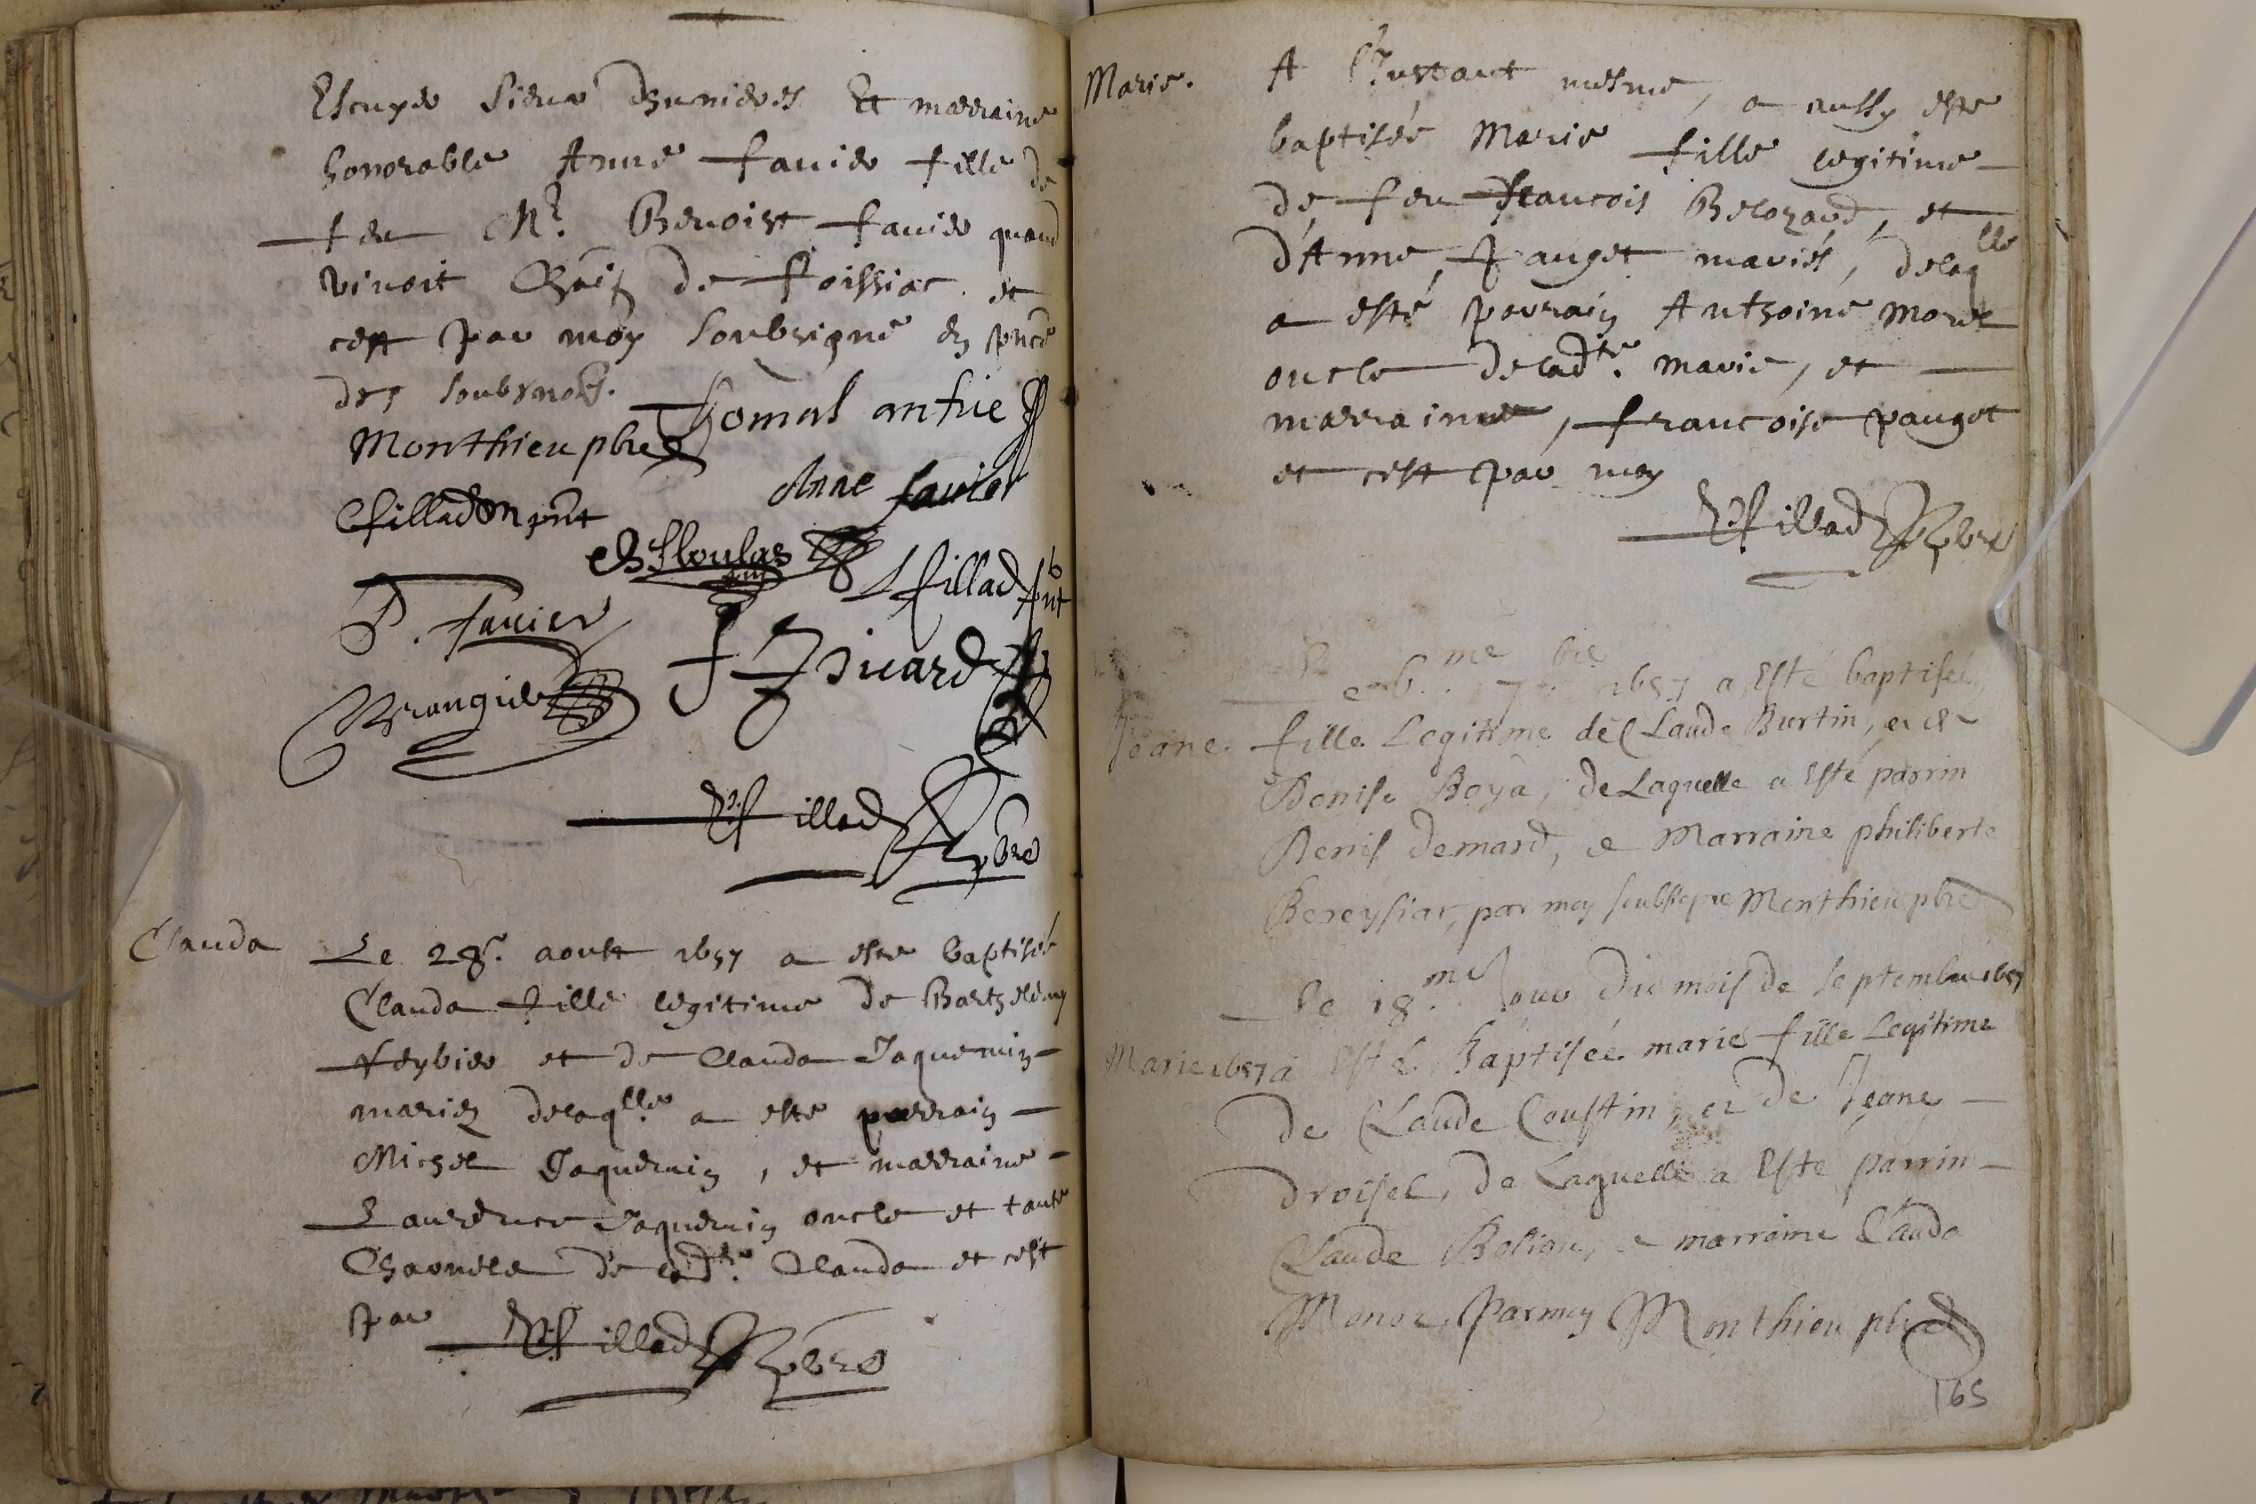 Escuyer sieur d'hunieres Et marraine
honorable Anne favier fille de
feu Mr. Benoist favier quand
vivoit de foissiac et
cest par moy soubsigné en pnce
des soubsnoés.
Thomas
Monthieu pbre
Anne favier
filladon pnt
L fillad pnt
P. favier
Brangier
J Sicard
fillad pbre
Clauda
Le 28e. aoust 1657 a este baptisée
Clauda fille legitime de Barthelemy
feybier et de Clauda Jaquemin
mariez delaqlle a este parrain
Michel Jaquemin, et marraine
Laurence Jaquemin oncle et tante
Charnelz de ladte. Clauda et cest
par fillad pbre
Marie.
A l'Instant mesme, a aussy este
baptisée Marie fille legitime
de feu francois et
d'Anne pauget mariés, delaqlle
a esté parrain Anthoine Morel
oncle deladte. marie, et
marraine, francoise pauget
et cest par moy
fillad pbre
Jeane.
Le me 7bre 1657 a Esté baptisée
fille Legitime de Claude Burtin, et de
Denise Boya, de Laquelle a Esté parrin
Denis demard, e Marraine philiberte
Bereysiat, par moy soubsigne Monthieu pbre
Le 18me Jour du mois de septembre 1657
Marie 1657 a Esté Baptisée marie fille Legitime
De Claude Coustin, et de Jeane
Droisel, de Laquelle a Esté parrin
Claude e marraine Clauda
Monor, par moy Monthieu pbre
165